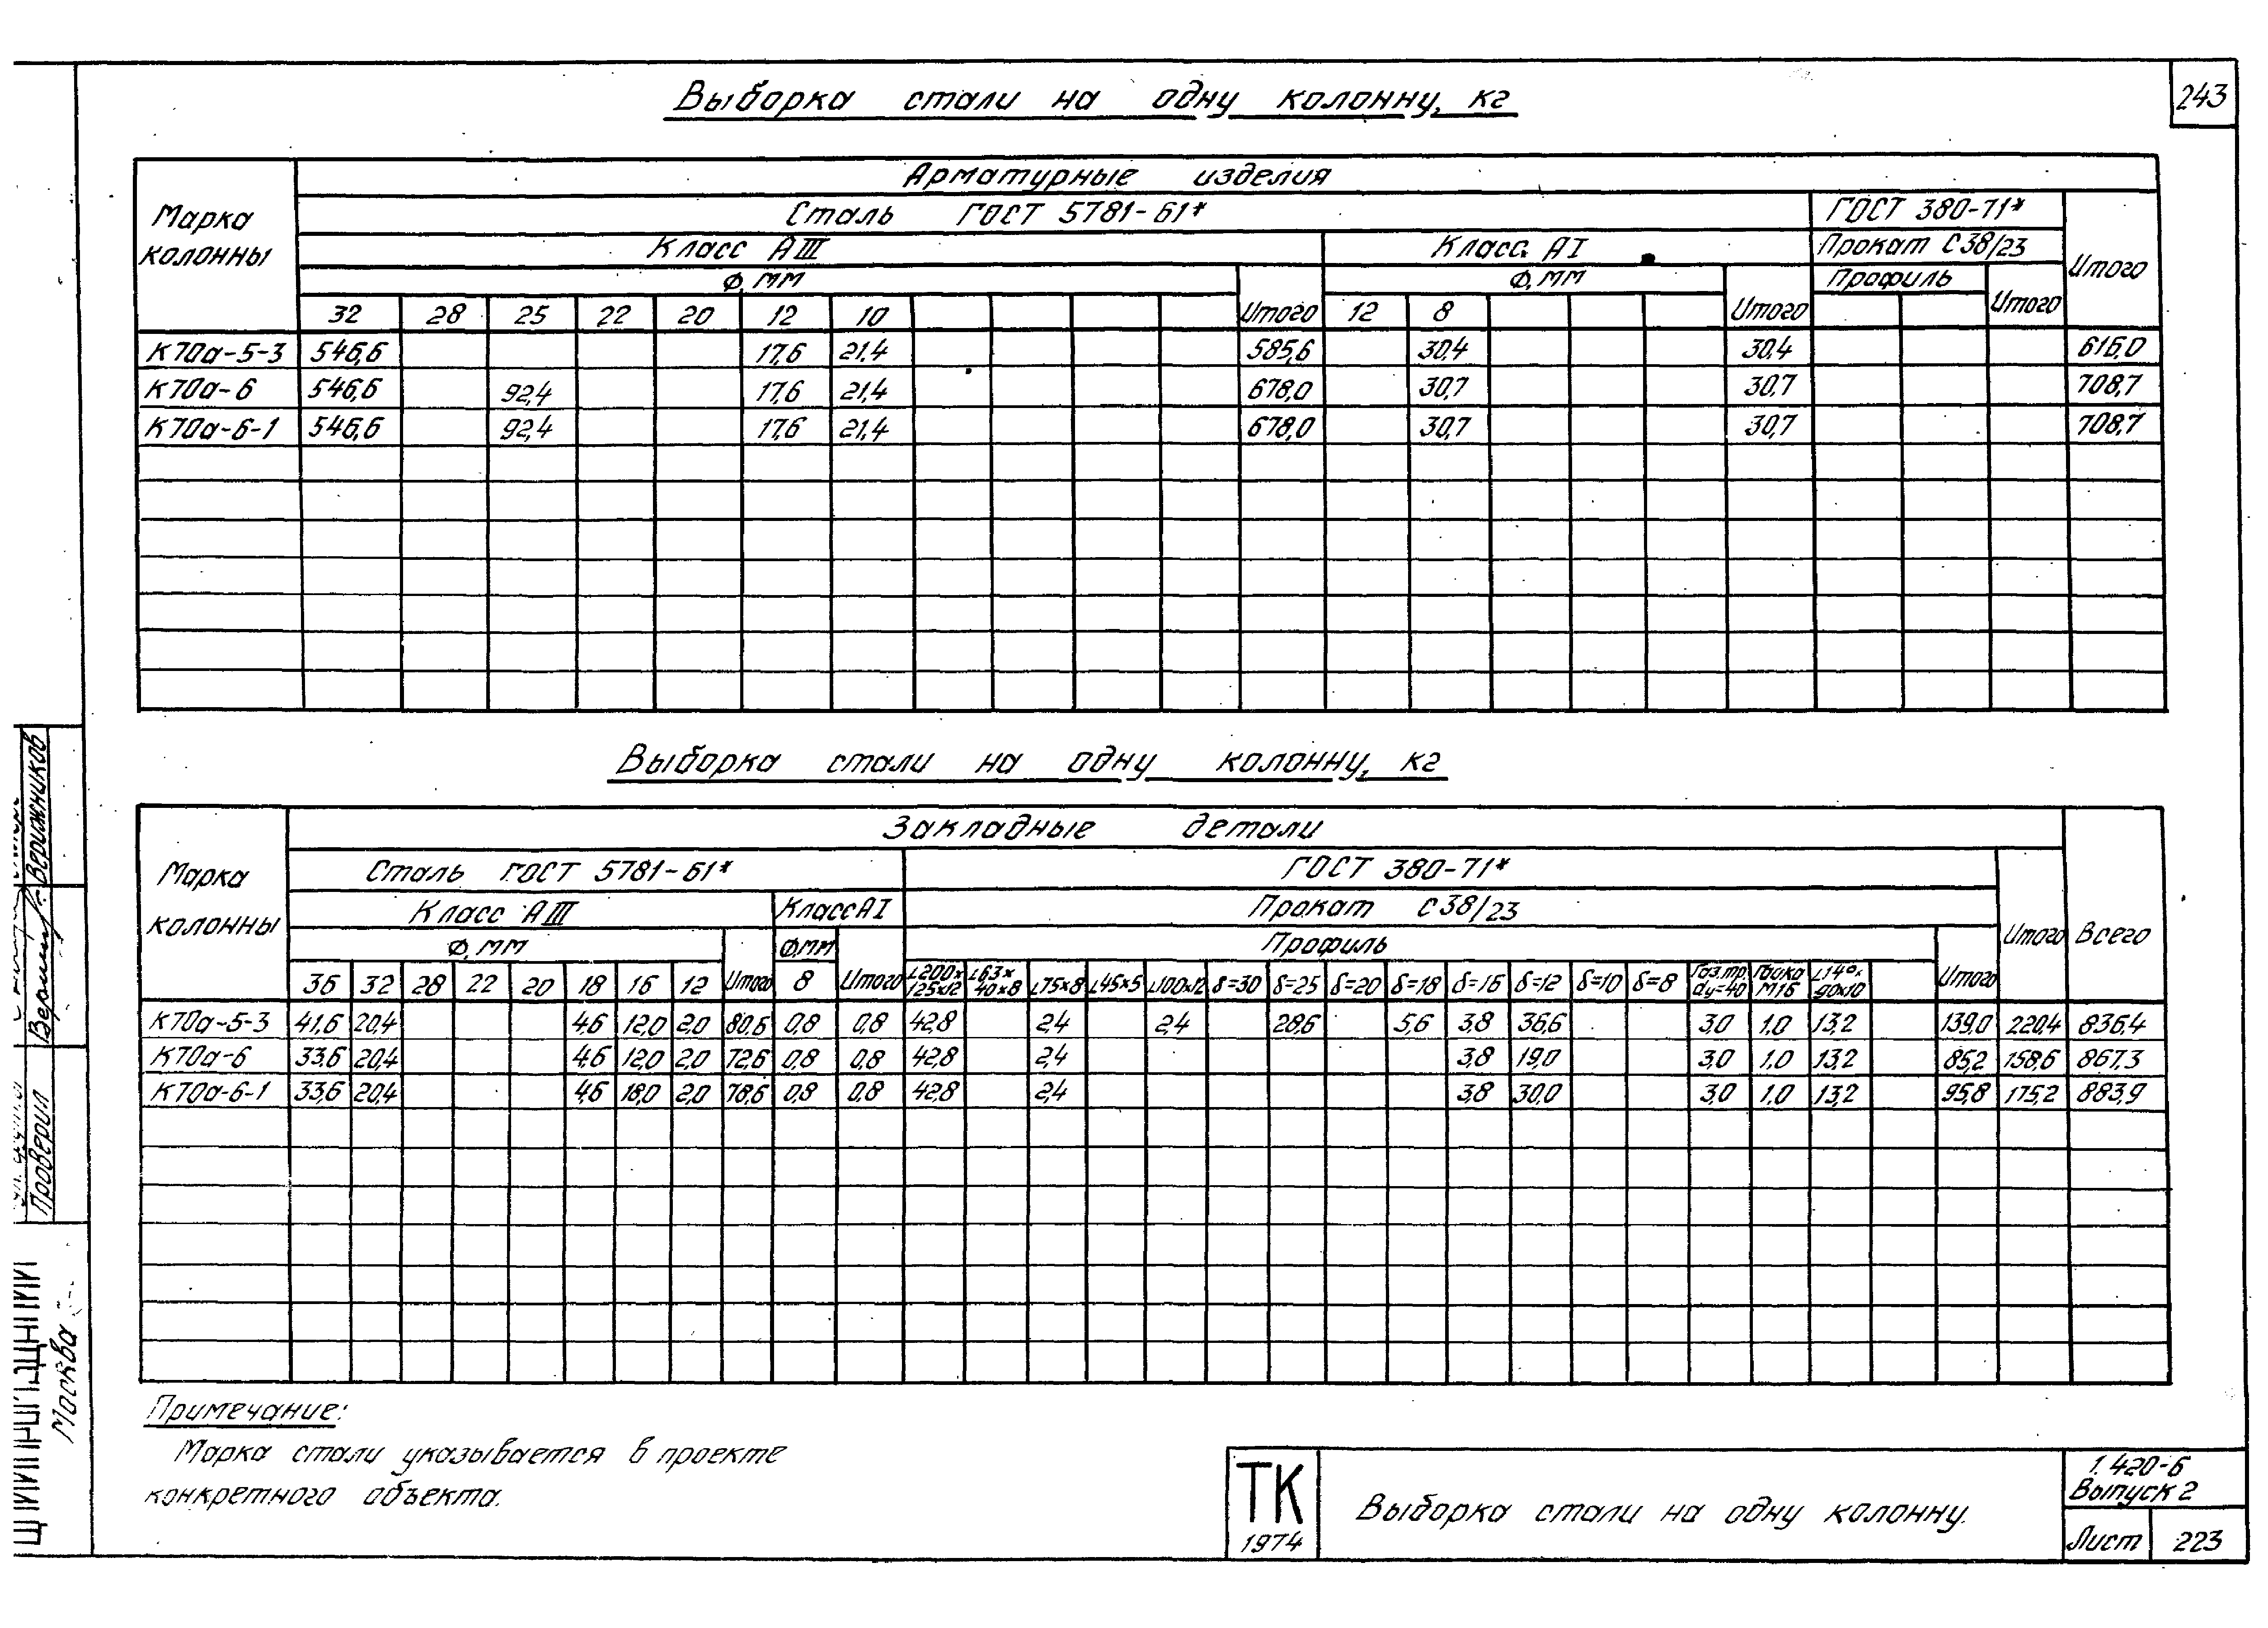 243
Выборка стали на одну колонну, кг
Марка колонны
Арматурные изделия
Сталь ГОСТ 5781-61* ГОСТ 380-71*
Класс АIII Класс АI Прокат С38/23 Итого
Ф, мм Итого Ф, мм Итого Профиль Итого
32 28 25 22 20 12 10 12 8
К70а-5-3 546,6 17,6 21,4 585,6 30,4 30,4 616,0
К70а-6 546,6 92,4 17,6 21,4 678,0 30,7 30,7 708,7
К70а-6-1 546,6 92,4 17,6 21,4 678,0 30,7 30,7 708,7
Выборка стали на одну колонну, кг
Марка колонны
Закладные детали Всего
Сталь ГОСТ 5781-61* ГОСТ 380-71* Итого
Класс АIII Класс АI Прокат С38/23
Ф, мм Итого Ф,мм Итого Профиль Итого
36 32 28 22 20 18 16 12 8 L200×125×12 L63×40×8 L75×8 L45×5 L100×12 δ=30 δ=25 δ=20 δ=18 δ=16 δ=12 δ=10 δ=8 Газ.тр. dу=40 Гайка М16 L140×90×10
К70а-5-3 41,6 20,4 4,6 12,0 2,0 80,6 0,8 0,8 42,8 2,4 2,4 28,6 5,6 3,8 36,6 3,0 1,0 13,2 139,0 220,4 836,4
К70а-6 33,6 20,4 4,6 12,0 2,0 72,6 0,8 0,8 42,8 2,4 3,8 19,0 3,0 1,0 13,2 85,2 158,6 867,3
К70а-6-1 33,6 20,4 4,6 18,0 2,0 78,6 0,8 0,8 42,8 2,4 3,8 30,0 3,0 1,0 13,2 95,8 175,2 883,9
Примечание:
Марка стали указывается в проекте
конкретного объекта.
ТК
1974
Выборка стали на одну колонну.
1.420-6
Выпуск 2
Лист 223
Проверил Верижников
Москва